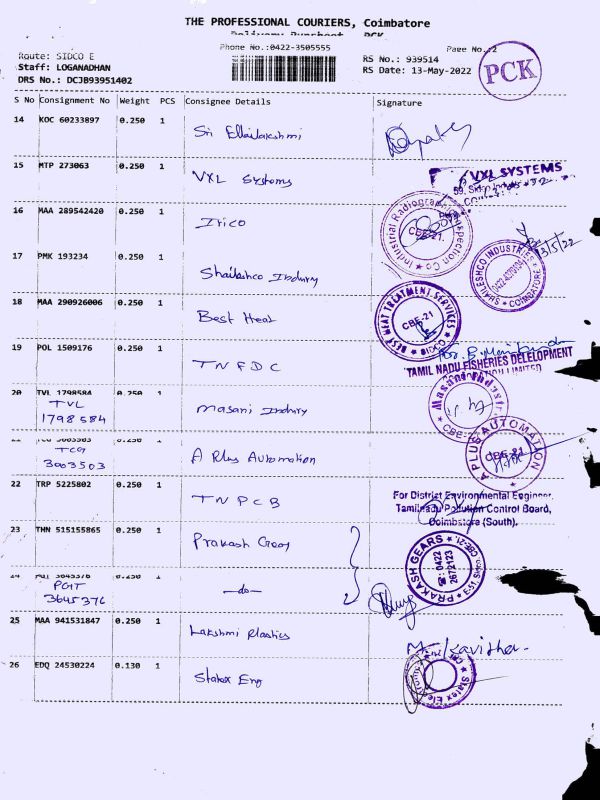 THE PROFESSIONAL COURIERS, Coimbatore
Delivery Runsheet PCK
Phone No.:0422-3505555
Page No.:2
Route: SIDCO E
Staff: LOGANADHAN
DRS No.: DCJB93951402
RS No.: 939514
RS Date: 13-May-2022
PCK
S No Consignment No Weight PCS Consignee Details Signature
14 KOC 60233897 0.250 1 Sri Ellailakshmi
15 MTP 273063 0.250 1 VXL Systems
VXL SYSTEMS
16 MAA 289542420 0.250 1 Irico
Industrial Radiography Inspection Co
CBE-21.
17 PMK 193234 0.250 1 Shaileshco Industry
SHAILESHCO INDUSTRIES COIMBATORE
13/5/22
18 MAA 290926006 0.250 1 Best Heat
BEST HEAT TREATMENT SERVICES
CBE-21
SIDCO
19 POL 1509176 0.250 1 TNFDC
TAMIL NADU FISHERIES DELELOPMENT
LIMITED
20 TVL 1798584 0.250 1 Masani Industry
TVL
1798584
Masani Industries
CBE-21
21 TCG 3003503 0.250 1 A Plus Automation
TCG
3003503
A PLUS AUTOMATION
CBE-21
22 TRP 5225802 0.250 1 TNPCB
For District Environmental Engineer,
Tamilnadu Pollution Control Board,
Coimbatore (South).
23 THN 515155865 0.250 1 Prakash Gears
PRAKASH GEARS
0422
2672123
24 PGT 3645376 0.250 1 -do-
PGT
3645376
25 MAA 941531847 0.250 1 Lakshmi Plastics
M. Kavitha
26 EDQ 24530224 0.130 1 Statex Eng
Statex